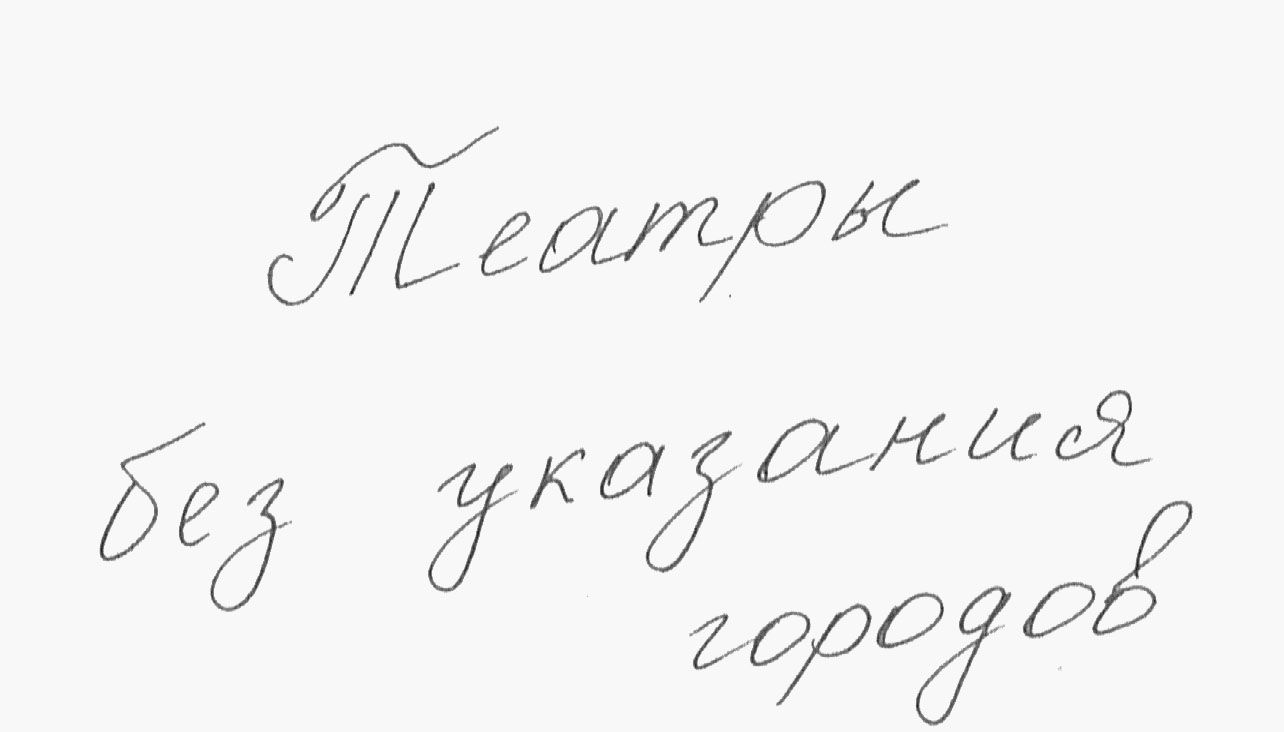 Театры
без указания
городов